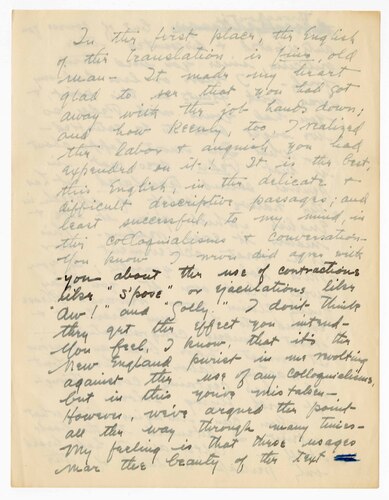 In the first place, the English
of this translation is fine, old
man - It made my heart
glad to see that you had got
away with the job hands down;
and how keenly, too, I realized
the labor & anguish you had
expended on it! It is the best,
this English, in the delicate &
difficult descriptive passages; and
least successful, to my mind, in
the colloquialisms & conversation -
You know I never did agree with
you about the use of contractions
like "S'pose" or ejaculations like
"Aw!" and "Golly." I don't think
they get the effect you intend -
You feel, I know, that it's the
New England purist in me revolting
against the use of any colloquialisms,
but in this you're mistaken -
However, we've argued the point
all the way through many times -
My feeling is that these usages
mar the beauty of the text